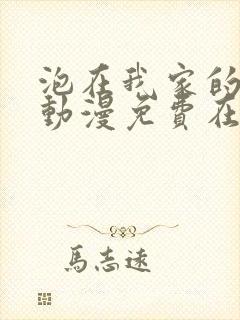 泡在我家的
動漫免費在
馬志遠